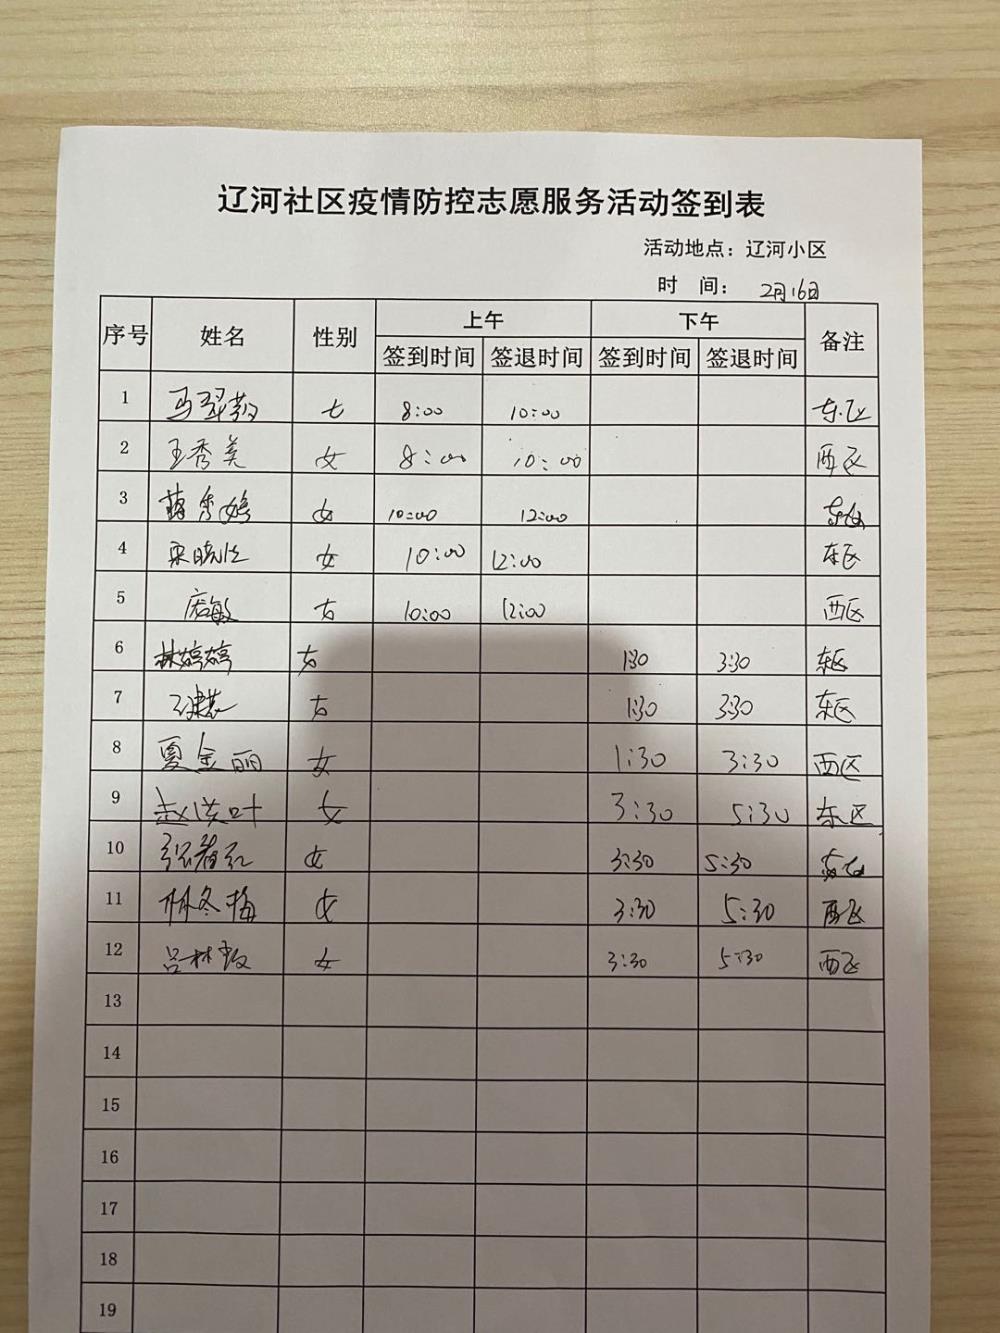 辽河社区疫情防控志愿服务活动签到表
活动地点：辽河小区
时 间： 2月16日
序号 姓名 性别 上午 下午 备注
签到时间 签退时间 签到时间 签退时间
1 马翠菊 女 8:00 10:00 东区
2 王秀美 女 8:00 10:00 西区
3 秀婷 女 10:00 12:00 东区
4 宋晓 女 10:00 12:00 东区
5 敏 女 10:00 12:00 西区
6 林婷婷 女 1:30 3:30 东区
7 女 1:30 3:30 东区
8 夏金丽 女 1:30 3:30 西区
9 赵洪叶 女 3:30 5:30 东区
10 张春红 女 3:30 5:30 东区
11 林冬梅 女 3:30 5:30 西区
12 吕林 女 3:30 5:30 西区
13
14
15
16
17
18
19